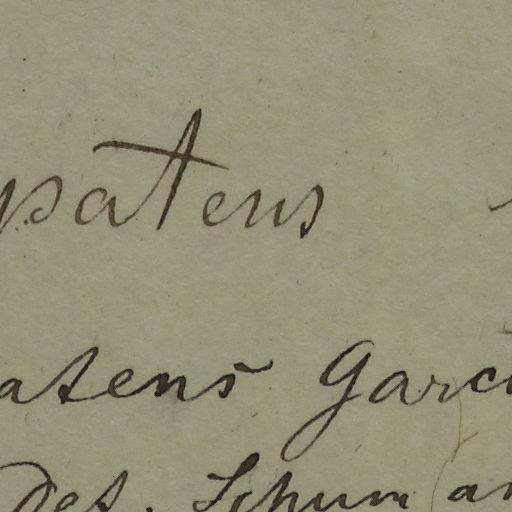 patens
atens Garc
Det. Schum an